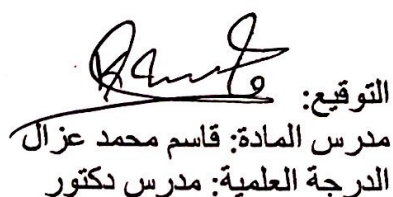 التوقيع:
مدرس المادة: قاسم محمد عزال
الدرجة العلمية: مدرس دكتور